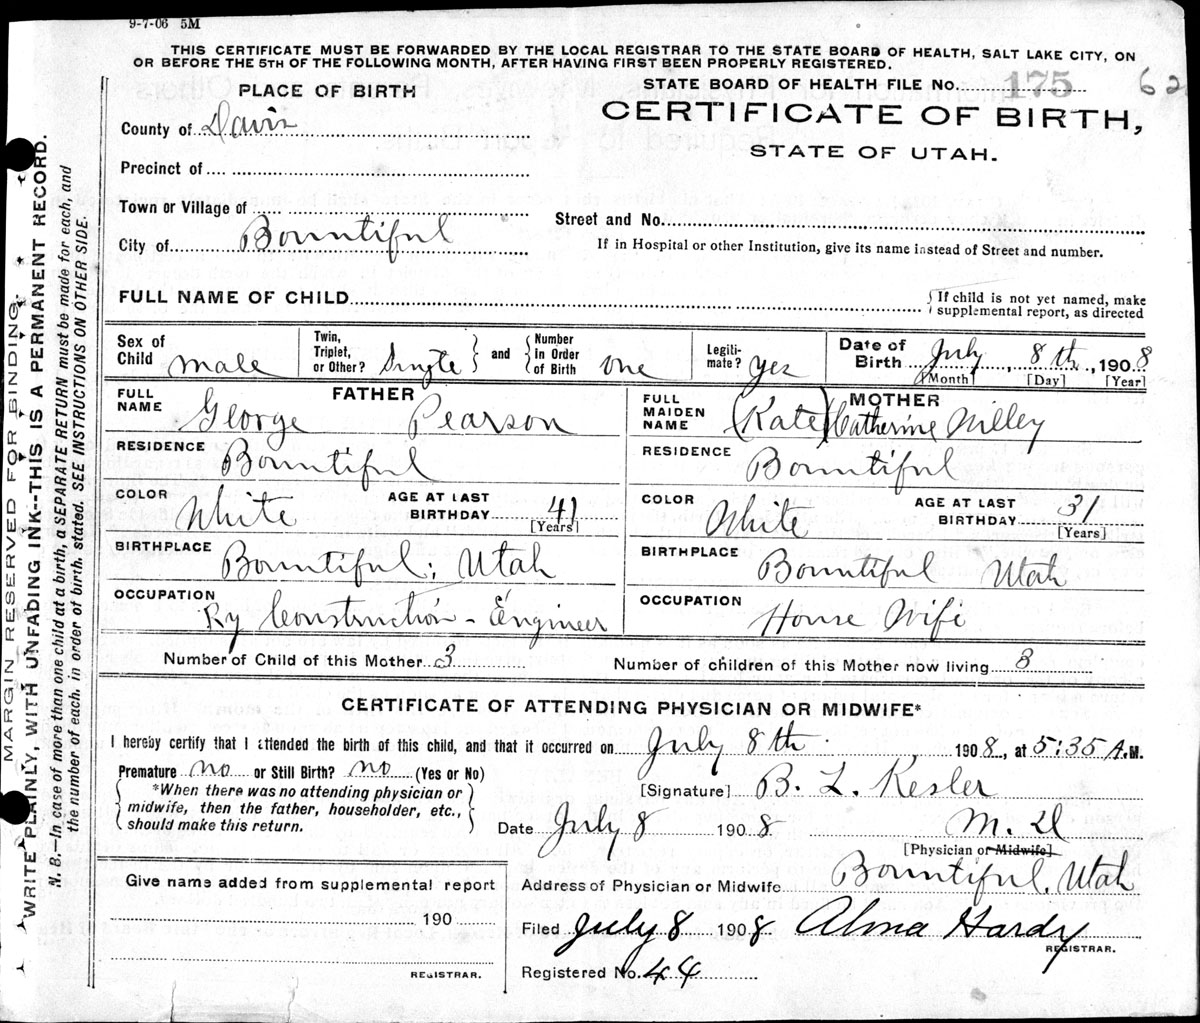 9-7-06 5M
THIS CERTIFICATE MUST BE FORWARDED BY THE LOCAL REGISTRAR TO THE STATE BOARD OF HEALTH, SALT LAKE CITY, ON
OR BEFORE THE 5TH OF THE FOLLOWING MONTH, AFTER HAVING FIRST BEEN PROPERLY REGISTERED.
STATE BOARD OF HEALTH FILE No. 175 62
PLACE OF BIRTH
CERTIFICATE OF BIRTH,
STATE OF UTAH.
County of Davis
Precinct of
Town or Village of
Street and No.
City of Bountiful
If in Hospital or other Institution, give its name instead of Street and number.
FULL NAME OF CHILD
If child is not yet named, make
supplemental report, as directed
Sex of Child male
Twin, Triplet, or Other? Single and Number in Order of Birth one
Legitimate? yes
Date of Birth July 8th, 1908
[Month] [Day] [Year]
FATHER
FULL NAME George Pearson
RESIDENCE Bountiful
COLOR White AGE AT LAST BIRTHDAY 41
[Years]
BIRTHPLACE Bountiful; Utah
OCCUPATION Ry Construction - Engineer
MOTHER
FULL MAIDEN NAME (Kate) Catherine Willey
RESIDENCE Bountiful
COLOR White AGE AT LAST BIRTHDAY 31
[Years]
BIRTHPLACE Bountiful Utah
OCCUPATION House Wife
Number of Child of this Mother 3 Number of children of this Mother now living 3
CERTIFICATE OF ATTENDING PHYSICIAN OR MIDWIFE*
I hereby certify that I attended the birth of this child, and that it occurred on July 8th 1908, at 5:35 A.M.
Premature no or Still Birth? no (Yes or No)
*When there was no attending physician or
midwife, then the father, householder, etc.,
should make this return.
[Signature] B. L. Kesler
Date July 8 1908 M. D
[Physician or Midwife]
Give name added from supplemental report
190
REGISTRAR.
Address of Physician or Midwife Bountiful, Utah
Filed July 8 1908 Alma Hardy
REGISTRAR.
Registered No. 44
MARGIN RESERVED FOR BINDING.
WRITE PLAINLY, WITH UNFADING INK--THIS IS A PERMANENT RECORD.
N. B.—In case of more than one child at a birth, a SEPARATE RETURN must be made for each, and
the number of each, in order of birth, stated. SEE INSTRUCTIONS ON OTHER SIDE.